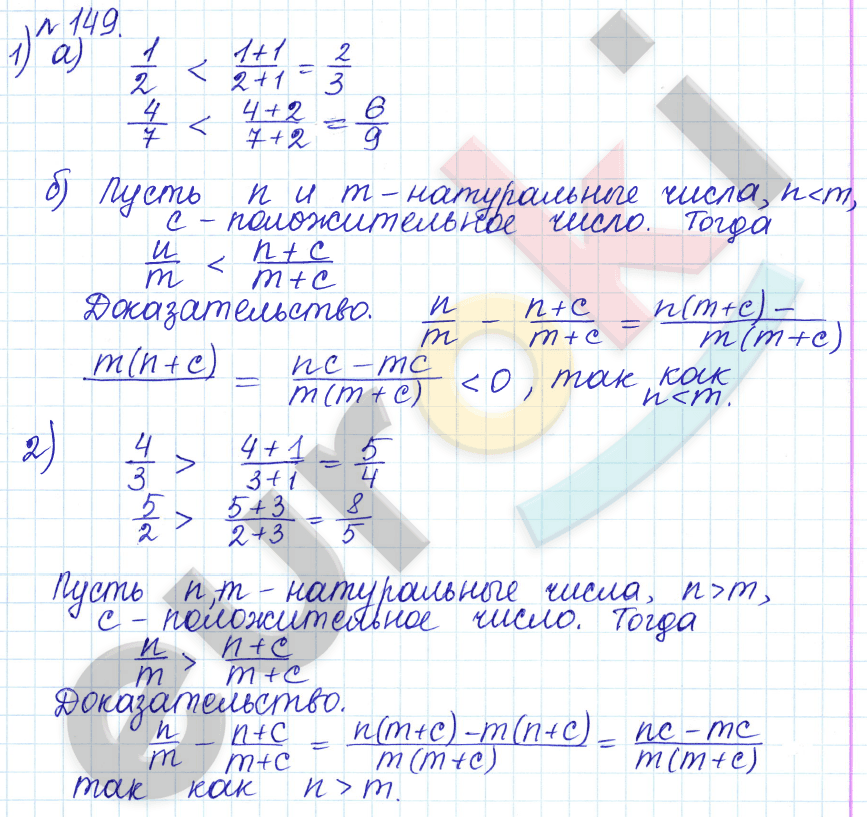 №149.
1) а) 1/2 < (1+1)/(2+1) = 2/3
4/7 < (4+2)/(7+2) = 6/9
б) Пусть n и m – натуральные числа, n<m,
c – положительное число. Тогда
n/m < (n+c)/(m+c)
Доказательство. n/m − (n+c)/(m+c) = (n(m+c) −
m(n+c))/(m(m+c)) = (nc − mc)/(m(m+c)) < 0, так как
n<m.
2) 4/3 > (4+1)/(3+1) = 5/4
5/2 > (5+3)/(2+3) = 8/5
Пусть n,m – натуральные числа, n>m,
c – положительное число. Тогда
n/m > (n+c)/(m+c)
Доказательство.
n/m − (n+c)/(m+c) = (n(m+c) − m(n+c))/(m(m+c)) = (nc − mc)/(m(m+c))
так как n>m.
euroki